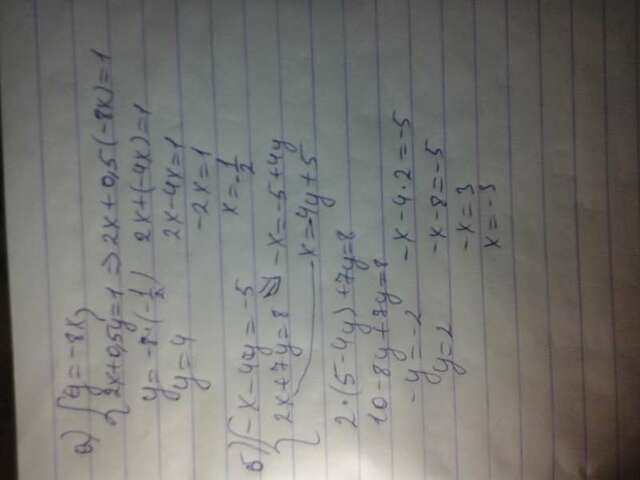 а) { y = -8x,
2x + 0,5y = 1 ⇒ 2x + 0,5(-8x) = 1
y = -8·(-1/2) 2x + (-4x) = 1
y = 4 2x - 4x = 1
-2x = 1
x = -1/2
б) { -x - 4y = -5
2x + 7y = 8 -x = -5 + 4y
-x = 4y + 5
2·(5 - 4y) + 7y = 8
10 - 8y + 7y = 8
-y = -2 -x - 4·2 = -5
y = 2 -x - 8 = -5
-x = 3
x = -3